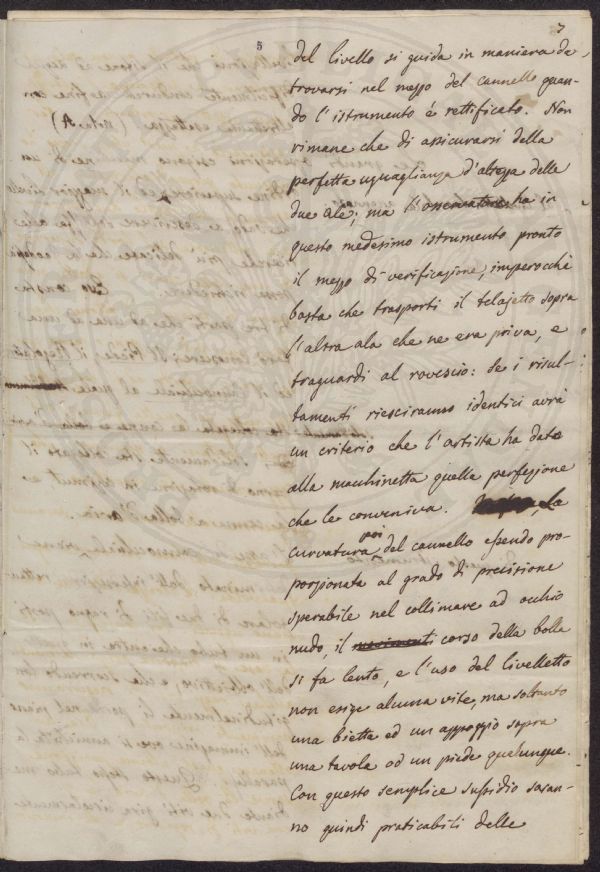 7
5
del livello si guida in maniera da
trovarsi nel mezzo del cannello quan-
do l'istrumento è rettificato. Non
rimane che di assicurarsi della
perfetta uguaglianza d'altezza delle
due ale; ma l'osservatore ha in
questo medesimo istrumento pronto
il mezzo di verificazione, imperocchè
basta che trasporti il telajetto sopra
l'altra ala che ne era priva, e
traguardi al rovescio: se i risul-
tamenti riesciranno identici avrà
un criterio che l'artista ha dato
alla macchinetta quella perfezione
che le conveniva. La
curvatura poi del cannello essendo pro-
porzionata al grado di precisione
sperabile nel collimare ad occhio
nudo, il movimenti corso della bolla
si fa lento, e l'uso del livelletto
non esige alcuna vite, ma soltanto
una bietta ed un appoggio sopra
una tavola od un piede qualunque.
Con questo semplice sussidio saran-
no quindi praticabili delle